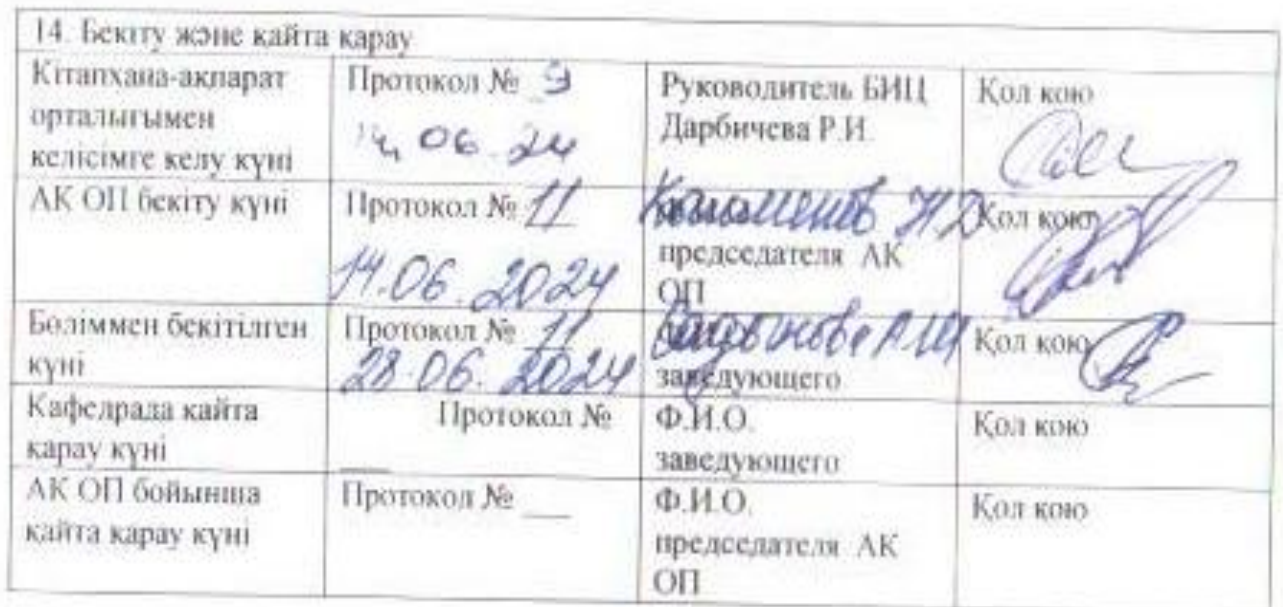 14. Бекіту және қайта қарау
Кітапхана-ақпарат орталығымен келісімге келу күні
Протокол № 9
14 06.24
Руководитель БИЦ Дарбичева Р.И.
Қол қою
АК ОП бекіту күні
Протокол № 11
14.06.2024
председателя АК ОП
Қол қою
Бөліммен бекітілген күні
Протокол № 11
28.06.2024
заведующего
Қол қою
Кафедрада қайта қарау күні
Протокол № ___
Ф.И.О. заведующего
Қол қою
АК ОП бойынша қайта қарау күні
Протокол № ___
Ф.И.О. председателя АК ОП
Қол қою